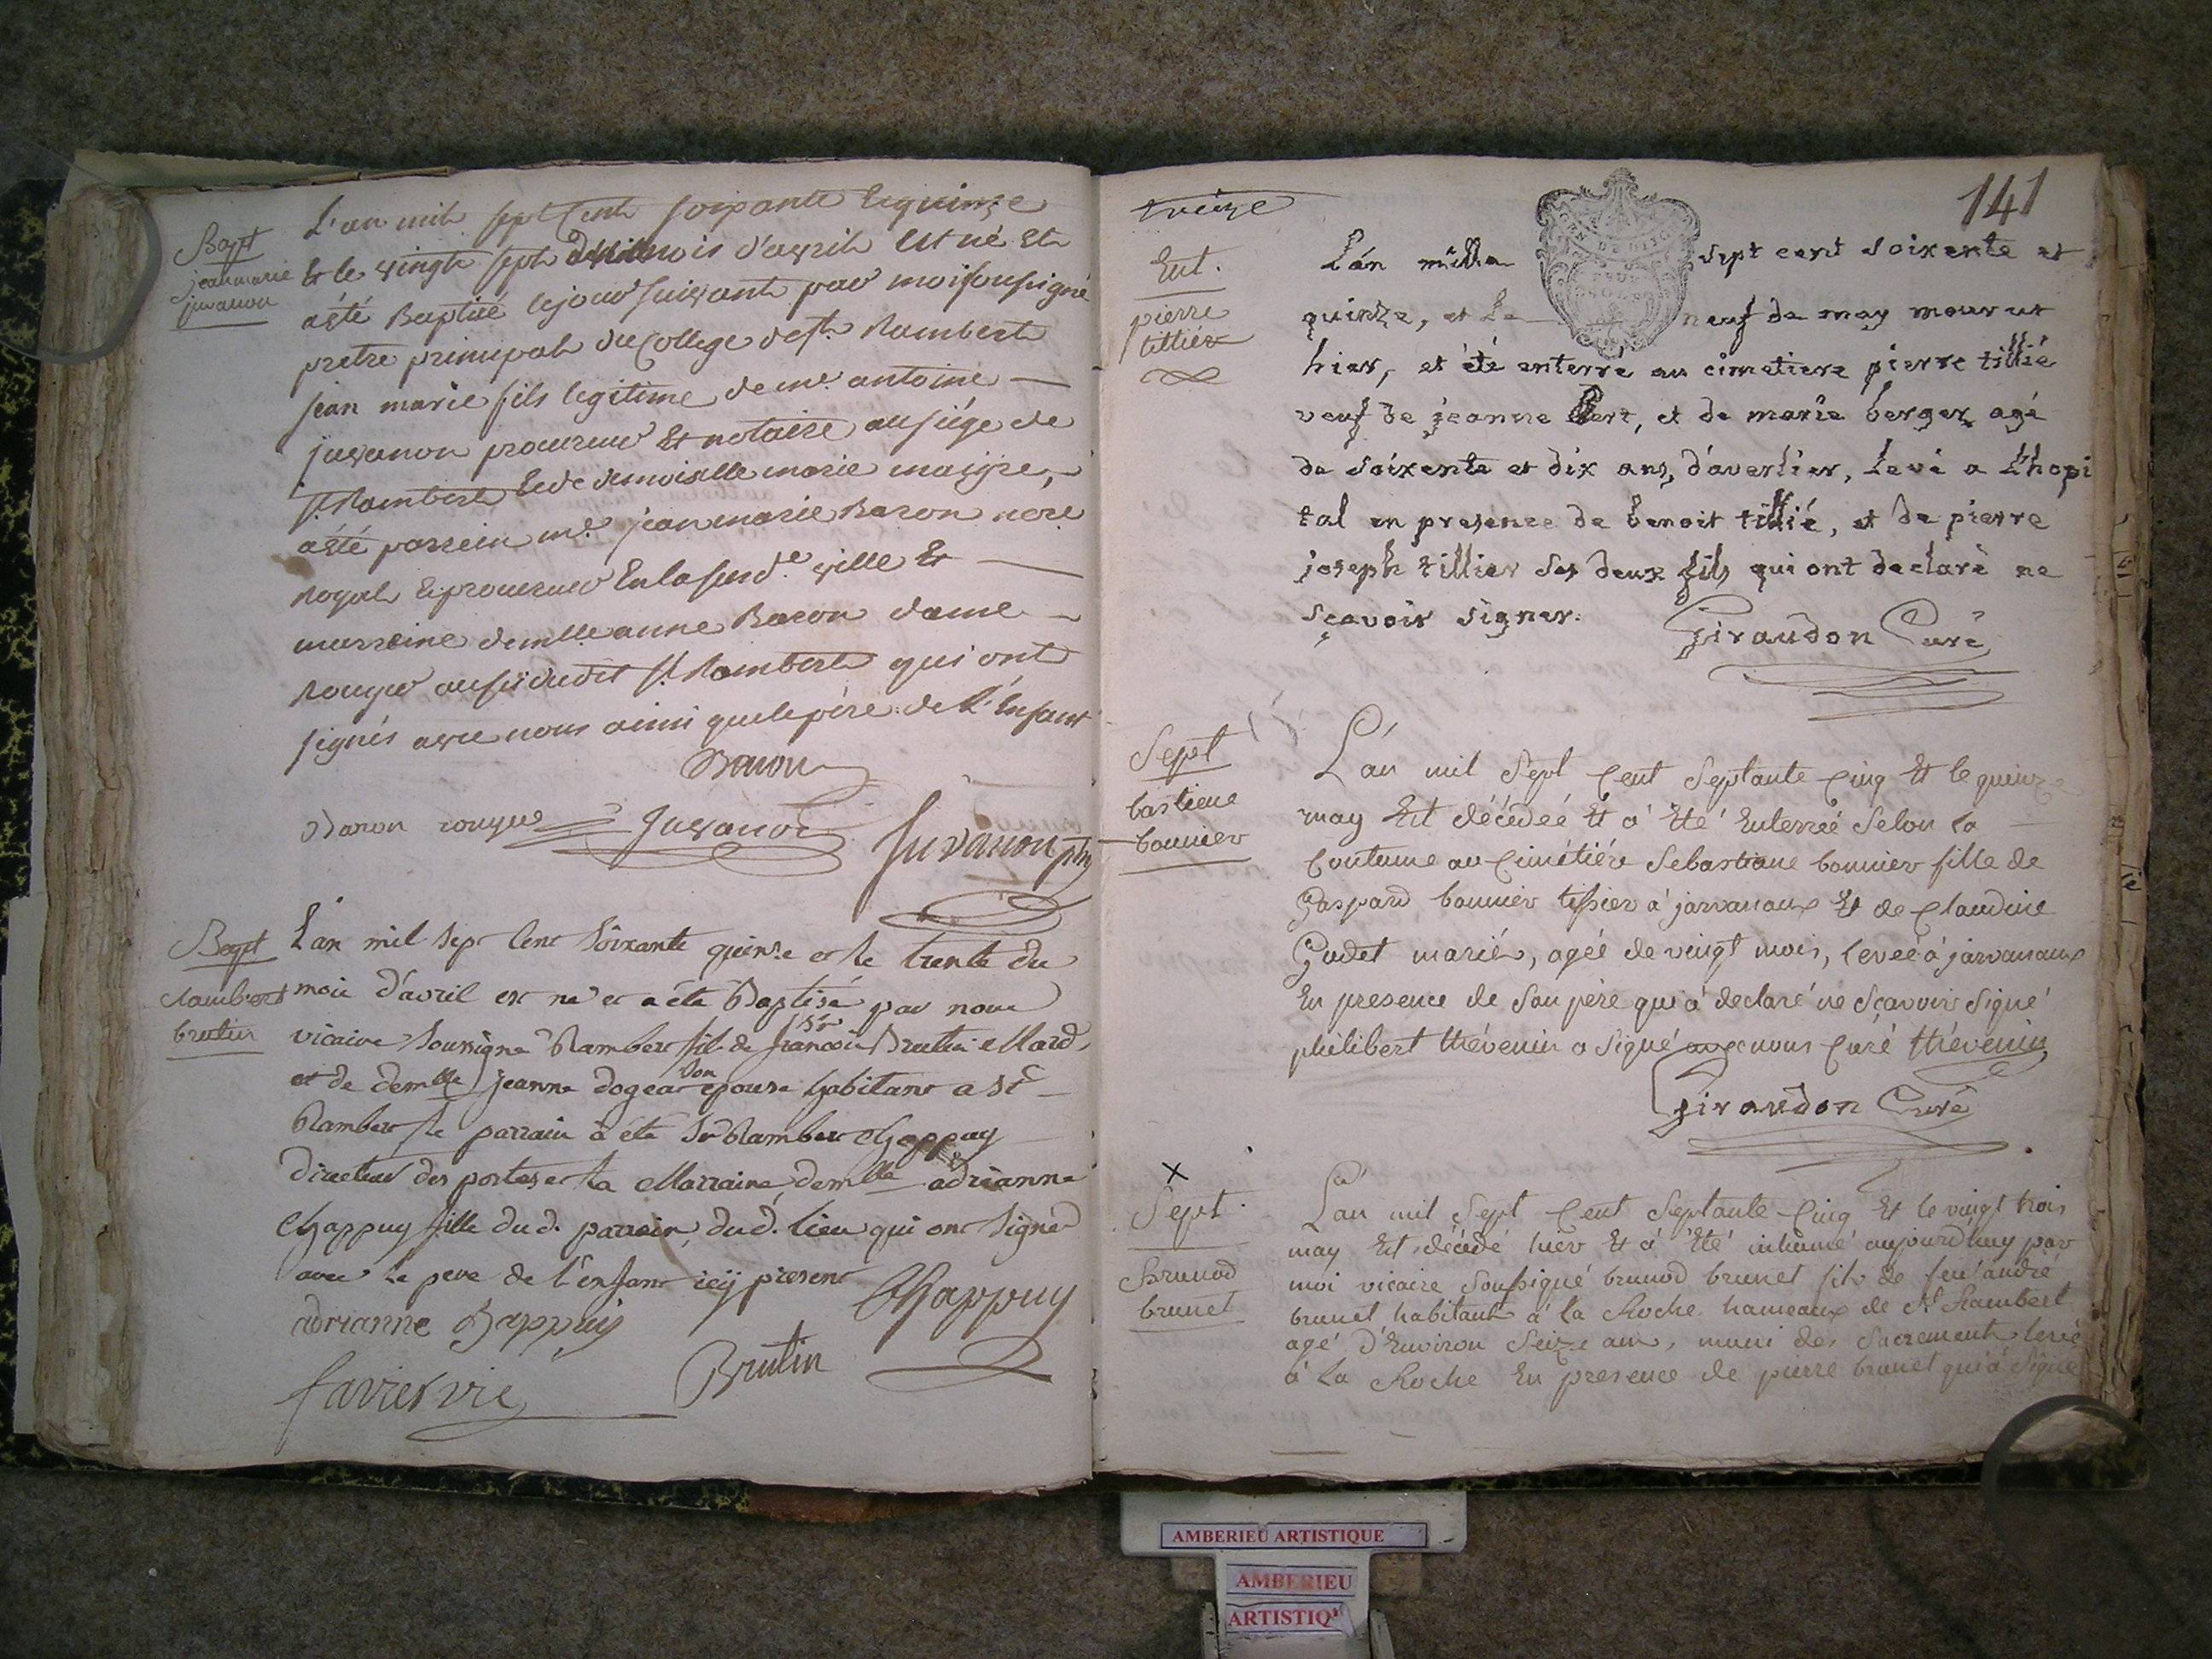 Bapt
jean marie
juvanon
L'an mil sept cent soixante et quinze
Et le vingt sept du mois d'avril est né et a
aété Baptisé le jour suivant par moi soussigné
pretre principal du College de st. Rambert
jean marie fils legitime de me. antoine
juvanon procureur Et notaire au siége de
st. Rambert Et de demoiselle marie
aété parrein me. jean marie Baron nore
royal Et procureur En la susde. ville Et
marreine demlle anne Baron dame
rouyer aussi dudit st. Rambert qui ont
signés avec nous ainsi que le pére de l'Enfant
Baron
Baron rouyer Juvanon Juvanon
Bapt
rambert
brutin
L'an mil sept cent soixante quinze et le trente du
mois d'avril est né et a été Baptisé par nous
vicaire soussigné Rambert fils de sr francois Brutin Mard
et de demlle jeanne dogeat son epouse habitant a St
Rambert le parrain à été sr Rambert Chappuy
directeur des postes et la Marraine demlle adrianne
Chappuy fille du d. parrain, du d. lieu qui ont signé
avec le pere de l'enfant icy present
adrianne Chappuis Chappuy
favier vic Brutin
treize
141
Ent.
pierre
tillier
L'án mille sept cent soixente et
quinze, et Le neuf de may mourut
hier, et été enterré au cimetiere pierre tillié
veuf de jeanne , et de marie berger, agé
de soixente et dix ans, d'averlier, Levé a L'hopi
tal en presence de benoit tillié, et de pierre
joseph tillier ses deux fils qui ont declaré ne
sçavoir signer. Giraudon Curé
Sept
bastiene
bonnier
L'an mil Sept Cent Septante Cinq Et le quinze
may Est décédeé Et á Eté Enterreé Selon la
Coutume au Cimétiére Sebastiane bonnier fille de
Gaspard bonnier tissier á jarvanaux Et de Claudine
Godet marié, ageé de vingt mois, leveé á jarvanaux
En presence de Son pére qui á declaré ne Sçavoir Signé
philibert thévenin a Signé avec nous Curé thévenin
Giraudon Curé
x
Sept.
brunod
brunet
L'an mil Sept Cent Septante Cinq Et le vingt trois
may Est décédé hier Et á Eté inhumé aujourd'huy par
moi vicaire Soussigné brunod brunet fils de feu andré
brunet habitant á la Roche hameaux de St Rambert
agé D'Environ Seize ans, muni des Sacrements levé
á La Roche En presence de pierre brunet qui á Signé
AMBERIEU ARTISTIQUE
AMBERIEU
ARTISTIQ